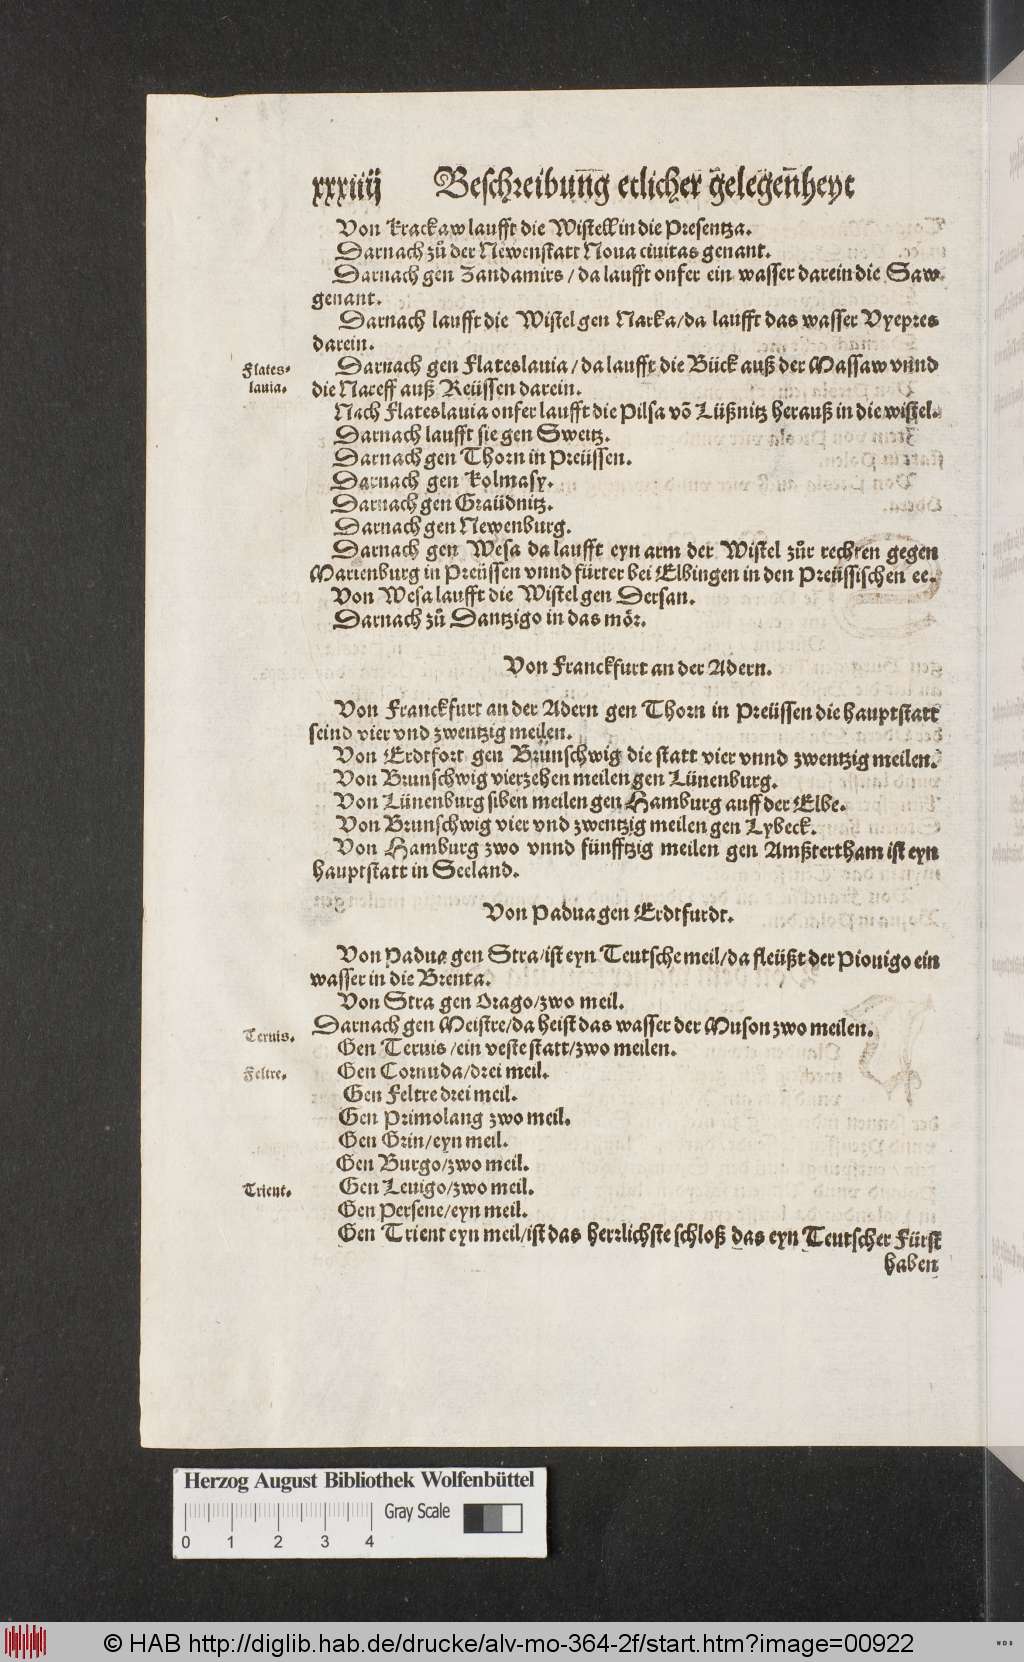 xxxiiij Beschreibun̄g etlicher gelegen̄heyt
Von Krackaw laufft die Wistell in die Presentza.
Darnach zů der Newenstatt Noua ciuitas genant.
Darnach gen Zandamirs / da laufft onfer ein wasser darein die Saw
genant.
Darnach laufft die Wistel gen Narka/da laufft das wasser Vyepres
darein.
Flates-
lauia.
Darnach gen Flateslauia / da laufft die Bück auß der Massaw vnnd
die Nareff auß Reüssen darein.
Nach Flateslauia onfer laufft die Pilsa võ Lüßnitz herauß in die wistel.
Darnach laufft sie gen Swetz.
Darnach gen Thorn in Preüssen.
Darnach gen Kolmasy.
Darnach gen Graüdnitz.
Darnach gen Newenburg.
Darnach gen Wesa da laufft eyn arm der Wistel zůr rechten gegen
Marienburg in Preüssen vnnd fürter bei Elbingen in den Preüssischen ee.
Von Wesa laufft die Wistel gen Dersan.
Darnach zů Dantzigo in das mör.
Von Franckfurt an der Adern.
Von Franckfurt an der Adern gen Thorn in Preüssen die hauptstatt
seind vier vnd zwentzig meilen.
Von Erdtfort gen Brunschwig die statt vier vnnd zwentzig meilen.
Von Brunschwig vierzehen meilen gen Lünenburg.
Von Lünenburg siben meilen gen Hamburg auff der Elbe.
Von Brunschwig vier vnd zwentzig meilen gen Lybeck.
Von Hamburg zwo vnnd fünfftzig meilen gen Amßtertham ist eyn
hauptstatt in Seeland.
Von Padua gen Erdtfurdt.
Von Padua gen Stra/ist eyn Teutsche meil/da fleüßt der Piouigo ein
wasser in die Brenta.
Von Stra gen Orago/zwo meil.
Darnach gen Meistre/da heist das wasser der Muson zwo meilen.
Teruis.
Gen Teruis /ein veste statt/zwo meilen.
Feltre.
Gen Cornuda/drei meil.
Gen Feltre drei meil.
Gen Primolang zwo meil.
Gen Grin/eyn meil.
Gen Burgo/zwo meil.
Trient.
Gen Leuigo/zwo meil.
Gen Persene/eyn meil.
Gen Trient eyn meil/ist das herrlichste schloß das eyn Teutscher Fürst
haben
Herzog August Bibliothek Wolfenbüttel
Gray Scale
0 1 2 3 4
© HAB http://diglib.hab.de/drucke/alv-mo-364-2f/start.htm?image=00922